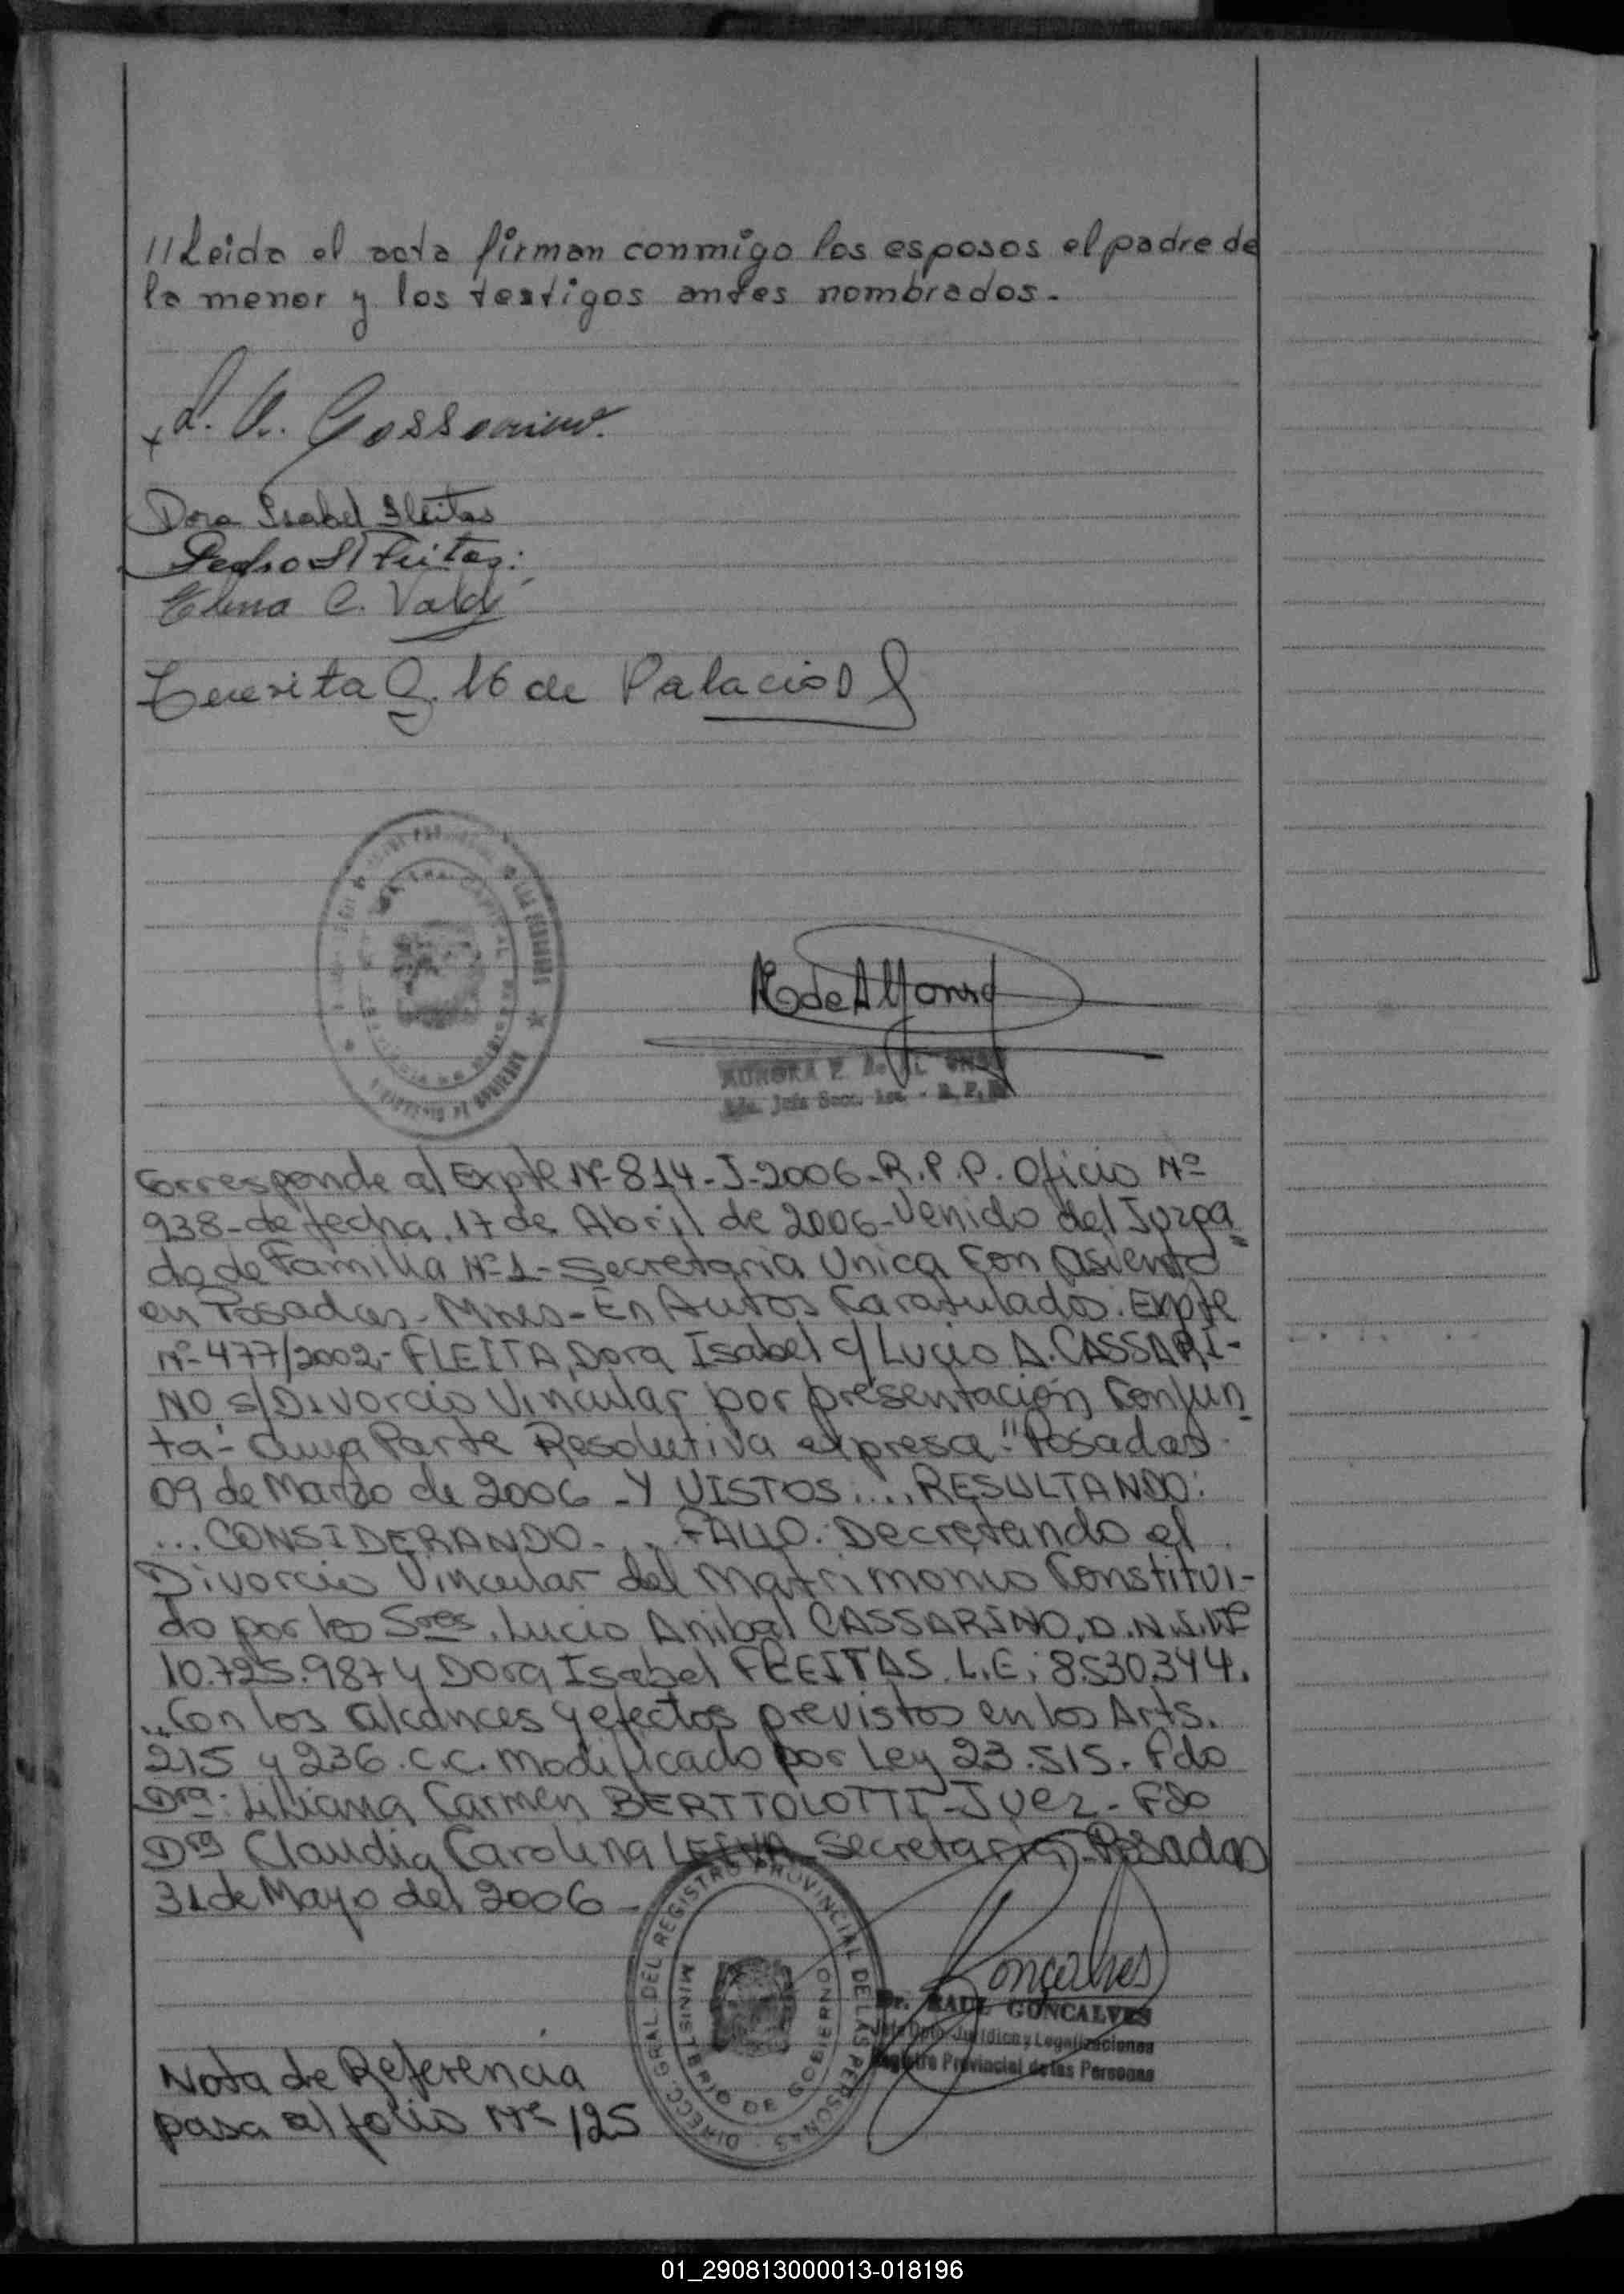 //Leida el acta firman conmigo los esposos el padre de
la menor y los testigos antes nombrados.-
x L. A. Cassarino
Dora Isabel Fleitas
Pedro Fleitas
Elena C. Valdi
Teresita de Palacios
R de Alfonso
AURORA
Corresponde al Expte Nº-814-J-2006-R.P.P. Oficio Nº
938-de fecha. 17 de Abril de 2006-Venido del Juzga
do de Familia Nº1-Secretaria Unica con asiento
en Posadas-Mnes-En Autos Caratulados: Expte
Nº-477/2002,-FLEITA, Dora Isabel c/ Lucio A. CASSARI-
NO s/Divorcio Vincular por presentación Conjun
ta"- Cuya Parte Resolutiva expresa-"Posadas
09 de Marzo de 2006-Y VISTOS:... RESULTANDO:
...CONSIDERANDO... FALLO: Decretando el
Divorcio Vincular del Matrimonio Constitui-
do por los Sres. Lucio Anibal CASSARINO, D.N.I. Nº
10.725.987 y Dora Isabel FLEITAS L.E: 8.530.344.
..Con los alcances y efectos previstos en los Arts.
215 y 236. C.C. modificado por Ley 23.515. Fdo
Dra. Liliana Carmen BERTTOLOTTI-Juez-Fdo
Dra Claudia Carolina LEIVA Secretaria-Posadas
31 de Mayo del 2006-
DIRECC. GRAL. DEL REGISTRO PROVINCIAL DE LAS PERSONAS
MINISTERIO DE GOBIERNO
Goncalves
Dr. RAUL GONCALVES
Jefe Dpto. Jurídico y Legalizaciones
Registro Provincial de las Personas
Nota de Referencia
pasa al folio Nº 125
01_290813000013-018196